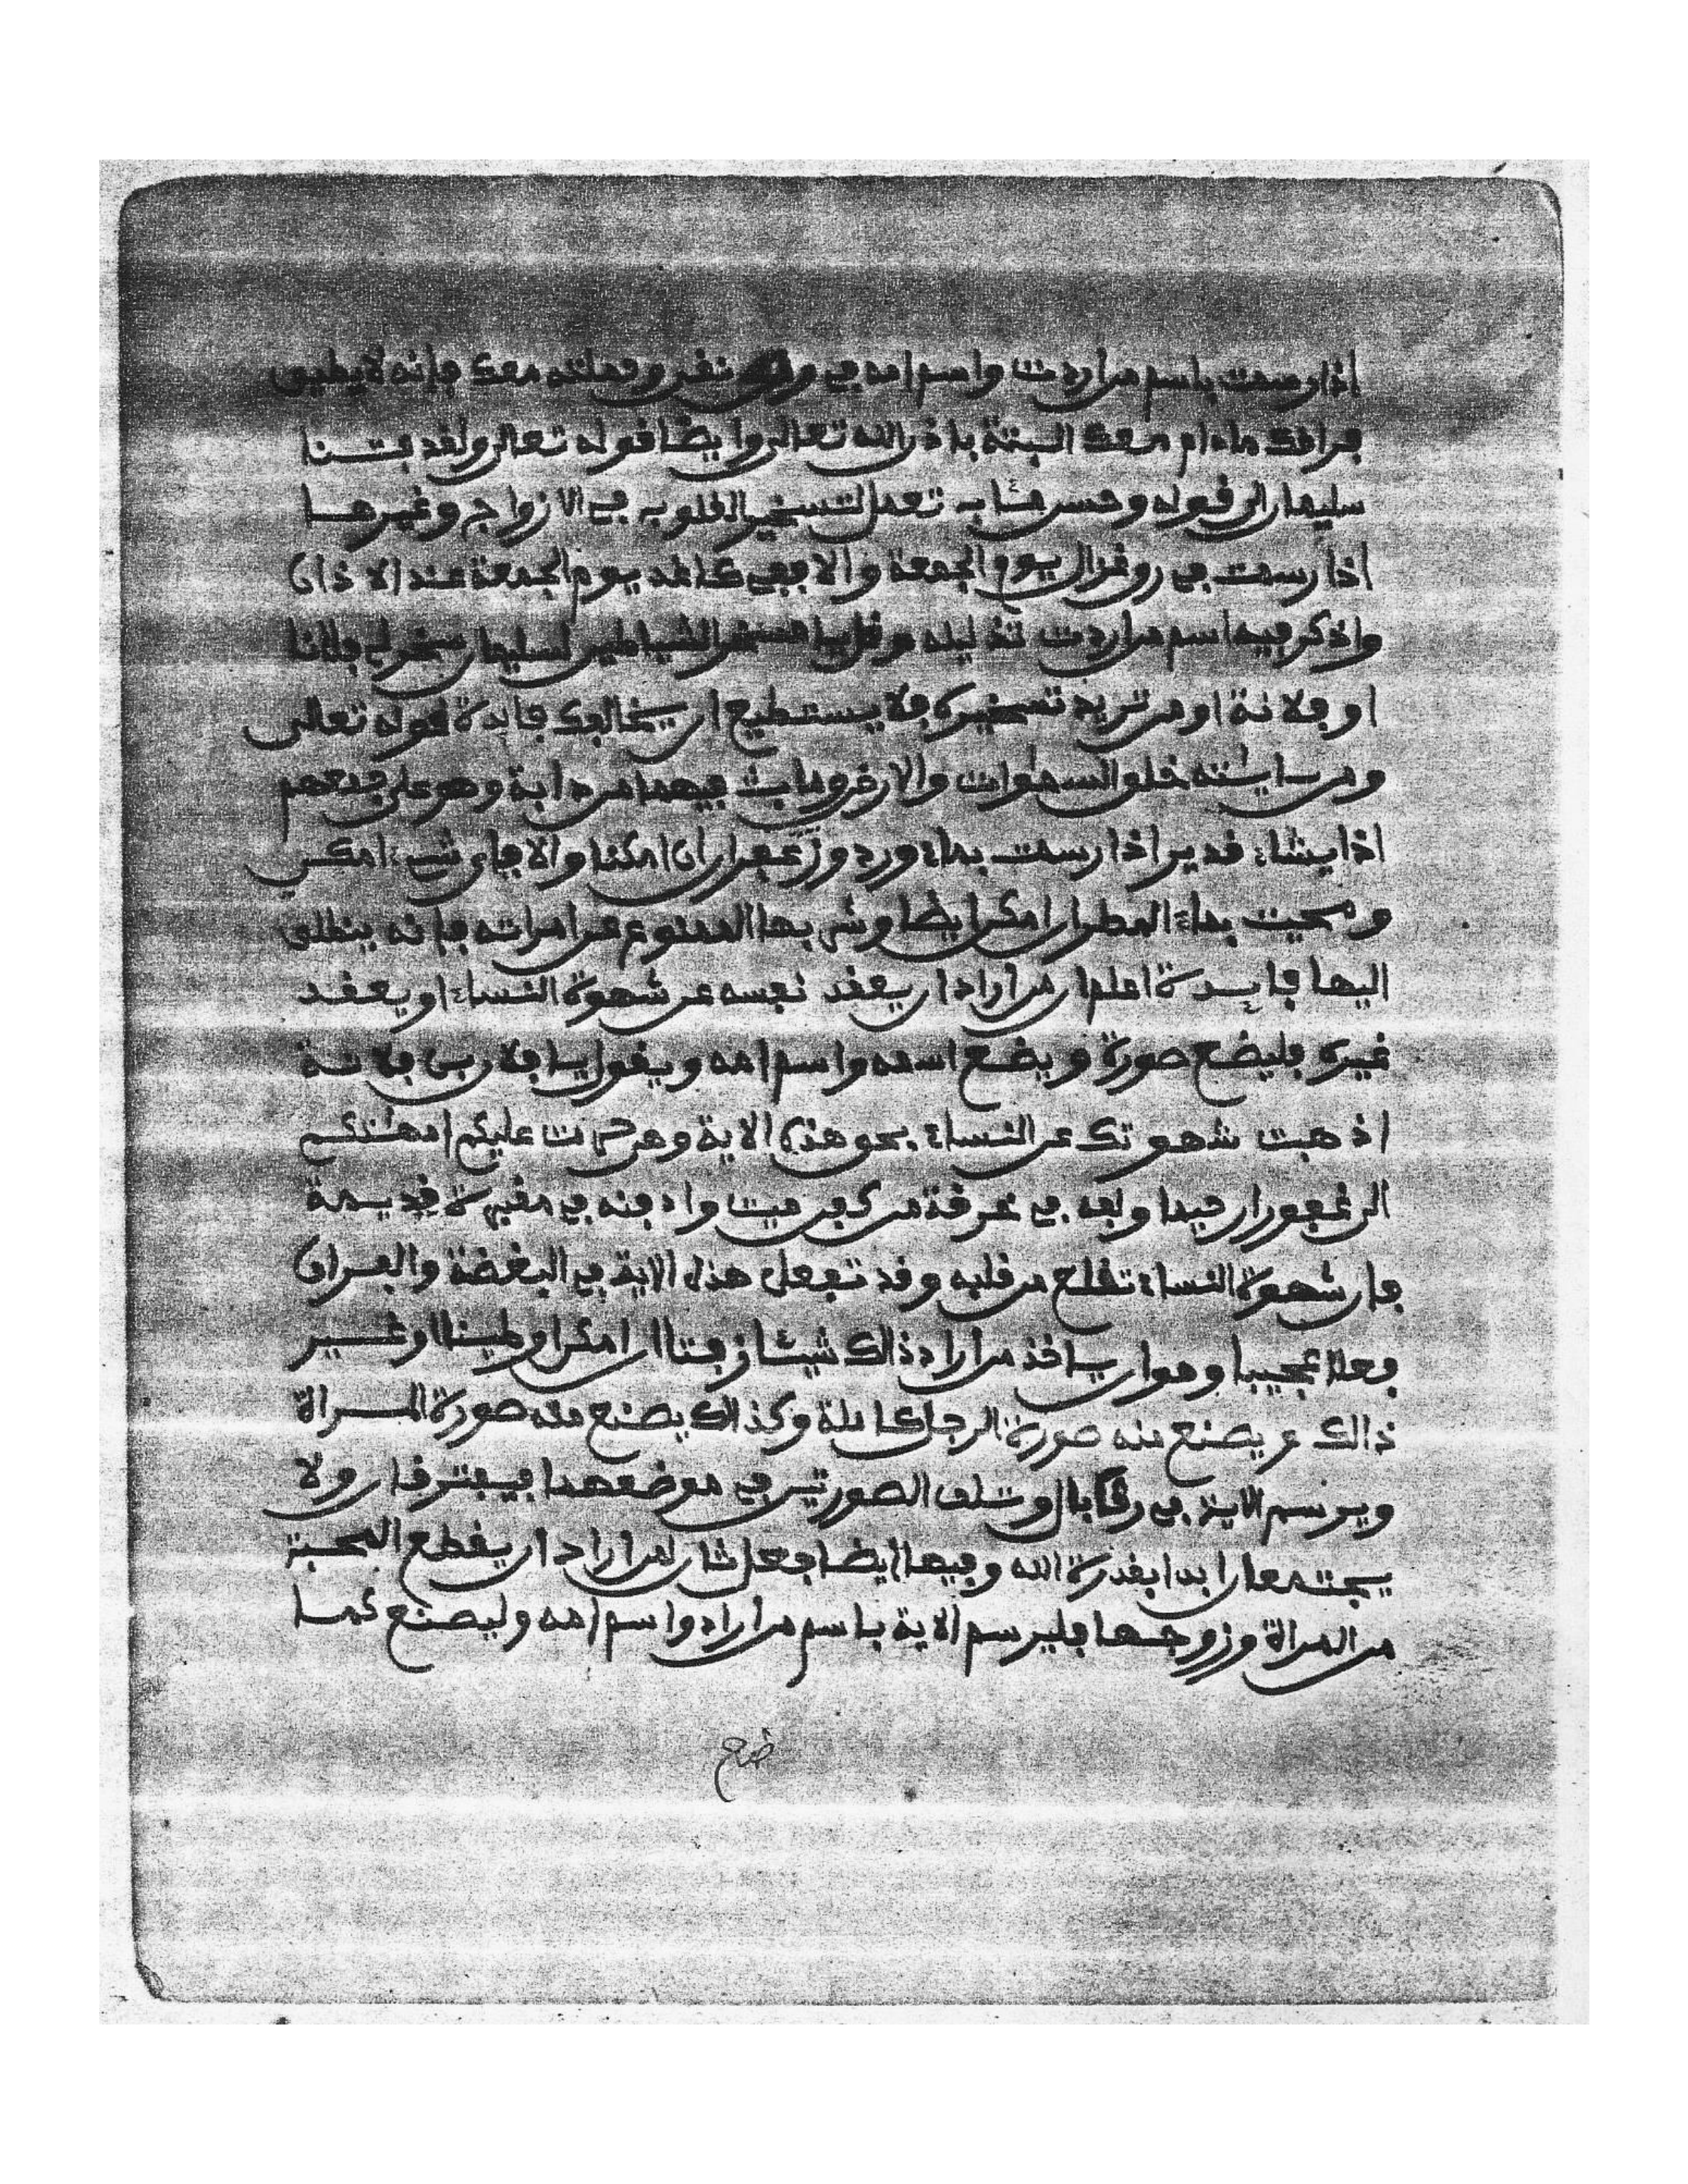 اذا رسمت باسم من اردت واسم امه في ورق نقي وحملته معك فإنه لا يطيق
فراقك مادام معك البتة باذن الله تعالى وايضا قوله تعالى ولقد فتنا
سليمان الى قوله وحسن مئاب تعمل لتسخير القلوب في الازواج وغيرها
اذا رسمت في رق غزال يوم الجمعة والا ففي كاغد يوم الجمعة عند الاذان
واذكر فيه اسم من اردت تذليله وقل يا مسخر الشياطين لسليمان سخر لي فلانا
او فلانة او من تريد تسخيره فلا يستطيع ان يخالفك فايدة قوله تعالى
ومن ءايٰته خلق السمٰوات والارض وما بث فيهما من دابة وهو على جمعهم
اذا يشاء قدير اذا رسمت بماء ورد وزعفران ان امكنا والا فباي شيء امكن
ومحيت بماء المطر ان امكن ايضا وشربها الممنوع عن امراته فإنه ينطلق
اليها فايدة اعلم ان من اراد ان يعقد نفسه عن شهوة النساء او يعقد
غيره فليضع صورة ويضع اسمه واسم امه ويقول يا فلان بن فلانة
اذهبت شهوتك عن النساء بحق هذه الاية وهي حرمت عليكم امهٰتكم
الى غفورا رحيما ولفه في خرقة من كفن ميت وادفنه في مقبرة قديمة
فان شهوة النساء تقلع من قلبه وقد تفعل هذه الاية في البغضة والفراق
فعلا عجيبا وهو ان ياخذ من اراد ذالك شيئا زفتا ان امكن او طينا او غير
ذالك ثم يصنع منه صورة الرجل كاملة وكذالك يصنع منه صورة المراة
ويرسم الاية في رق بال وتلف الصورتين في موضعهما فيفترقان ولا
يجتمعان ابدا بقدرة الله وفيها ايضا فعل ثان لمن اراد ان يقطع المحبة
من المراة وزوجها فليرسم الاية باسم من اراد واسم امه وليصنع كما